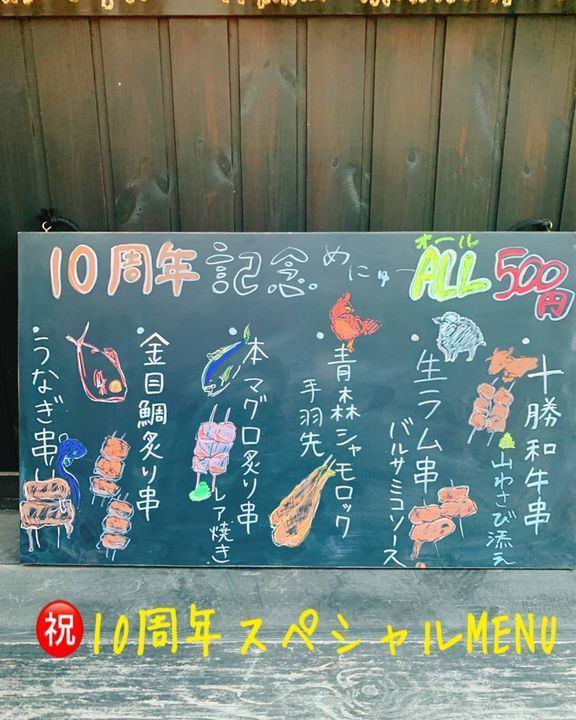 10周年記念めにゅー
オール
ALL 500円
・十勝和牛串
山わさび添え
・生ラム串
バルサミコソース
・青森シャモロック
手羽先
・本マグロ炙り串
レア焼き
・金目鯛炙り串
・うなぎ串
祝10周年スペシャルMENU